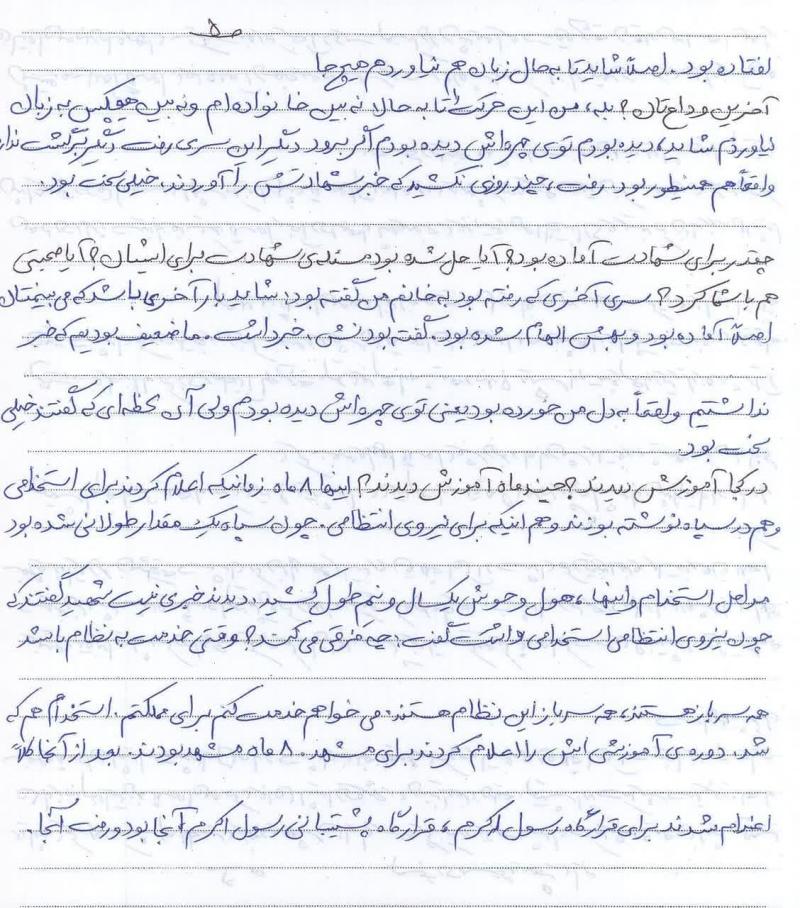 ص ۵
نفتاده بود. اصلاً شاید تا به حال زبان هم نیاوردم هیچ جا
آخرین وداع تان؟ بله، من این حرکت را تا به حالا نه بین خانواده ام و نه بین هیچکس به زبان
نیاوردم شاید، دیده بودم توی چهره اش دیده بودم اگر برود دیگر این سری رفت دیگر برگشت ندارد
واقعاً هم همینطور بود. رفت، چند روزی نکشید که خبر شهادتش را آوردند. خیلی سخت بود.
چقدر برای شهادت آماده بود؟ آیا حل شده بود مسئله ی شهادت برای ایشان؟ آیا صحبتی
هم با شما کرد؟ سری آخری که رفته بود به خانم من گفته بود: شاید بار آخری باشد که می بینمتان
اصلاً آماده بود و بهش الهام شده بود. گفته بودنش، خبر داشت. ما ضعیف بودیم که خبر
نداشتیم واقعاً به دل من خورده بود یعنی توی چهره اش دیده بودم ولی آن لحظه ای که گفتند خیلی
سخت بود.
در کجا آموزش دیدند؟ چند ماه آموزش دیدند؟ اینها ۸ ماه زمانیکه اعلام کردند برای استخدامی
و هم در سپاه نوشته بودند و هم اینکه برای نیروی انتظامی. چون سپاه یک مقدار طولانی شده بود
مراحل استخدام و اینها، هول و حوش یکسال و نیم طول کشید. دیدند خبری نیست شهید گفتند که
چون نیروی انتظامی استخدامی داشت گفت: چه فرقی می کند؟ وقتی خدمت به نظام باشد
همه سرباز هستند، همه سرباز این نظام هستند. می خواهم خدمت کنم برای مملکتم. استخدام هم که
شد. دوره ی آموزشی اش را اعلام کردند برای مشهد. ۸ ماه مشهد بودند. بعد از آنجا کلاً
اعزام شدند برای قرارگاه رسول اکرم، قرارگاه پشتیبانی رسول اکرم آنجا بود و رفت آنجا.